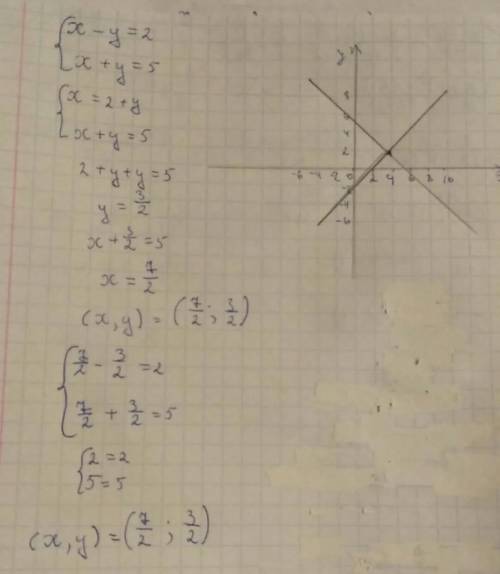 {x - y = 2
{x + y = 5
{x = 2 + y
{x + y = 5
2 + y + y = 5
y = 3/2
x + 3/2 = 5
x = 7/2
(x, y) = (7/2 ; 3/2)
{7/2 - 3/2 = 2
{7/2 + 3/2 = 5
{2 = 2
{5 = 5
(x, y) = (7/2 ; 3/2)
y
8
6
4
2
-6 -4 -2 0 2 4 6 8 10
-4
-6